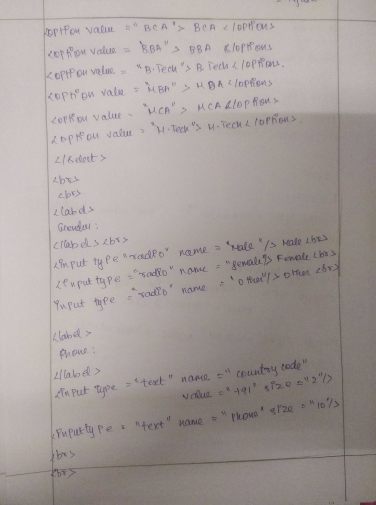 <option value = "BCA"> BCA </option>
<option value = "BBA"> BBA </option>
<option value = "B.Tech"> B.Tech </option>
<option value = "MBA"> MBA </option>
<option value = "MCA"> MCA </option>
<option value = "M.Tech"> M.Tech </option>
</select>
<br>
<br>
<label>
Gender:
</label> <br>
<input type = "radio" name = "Male"/> Male <br>
<input type = "radio" name = "female"/> Female <br>
input type = "radio" name = "other"/> other <br>
<label>
Phone:
</label>
<input type = "text" name = "country code"
value = "+91" size = "2"/>
<input type = "text" name = "phone" size = "10"/>
<br>
<br>